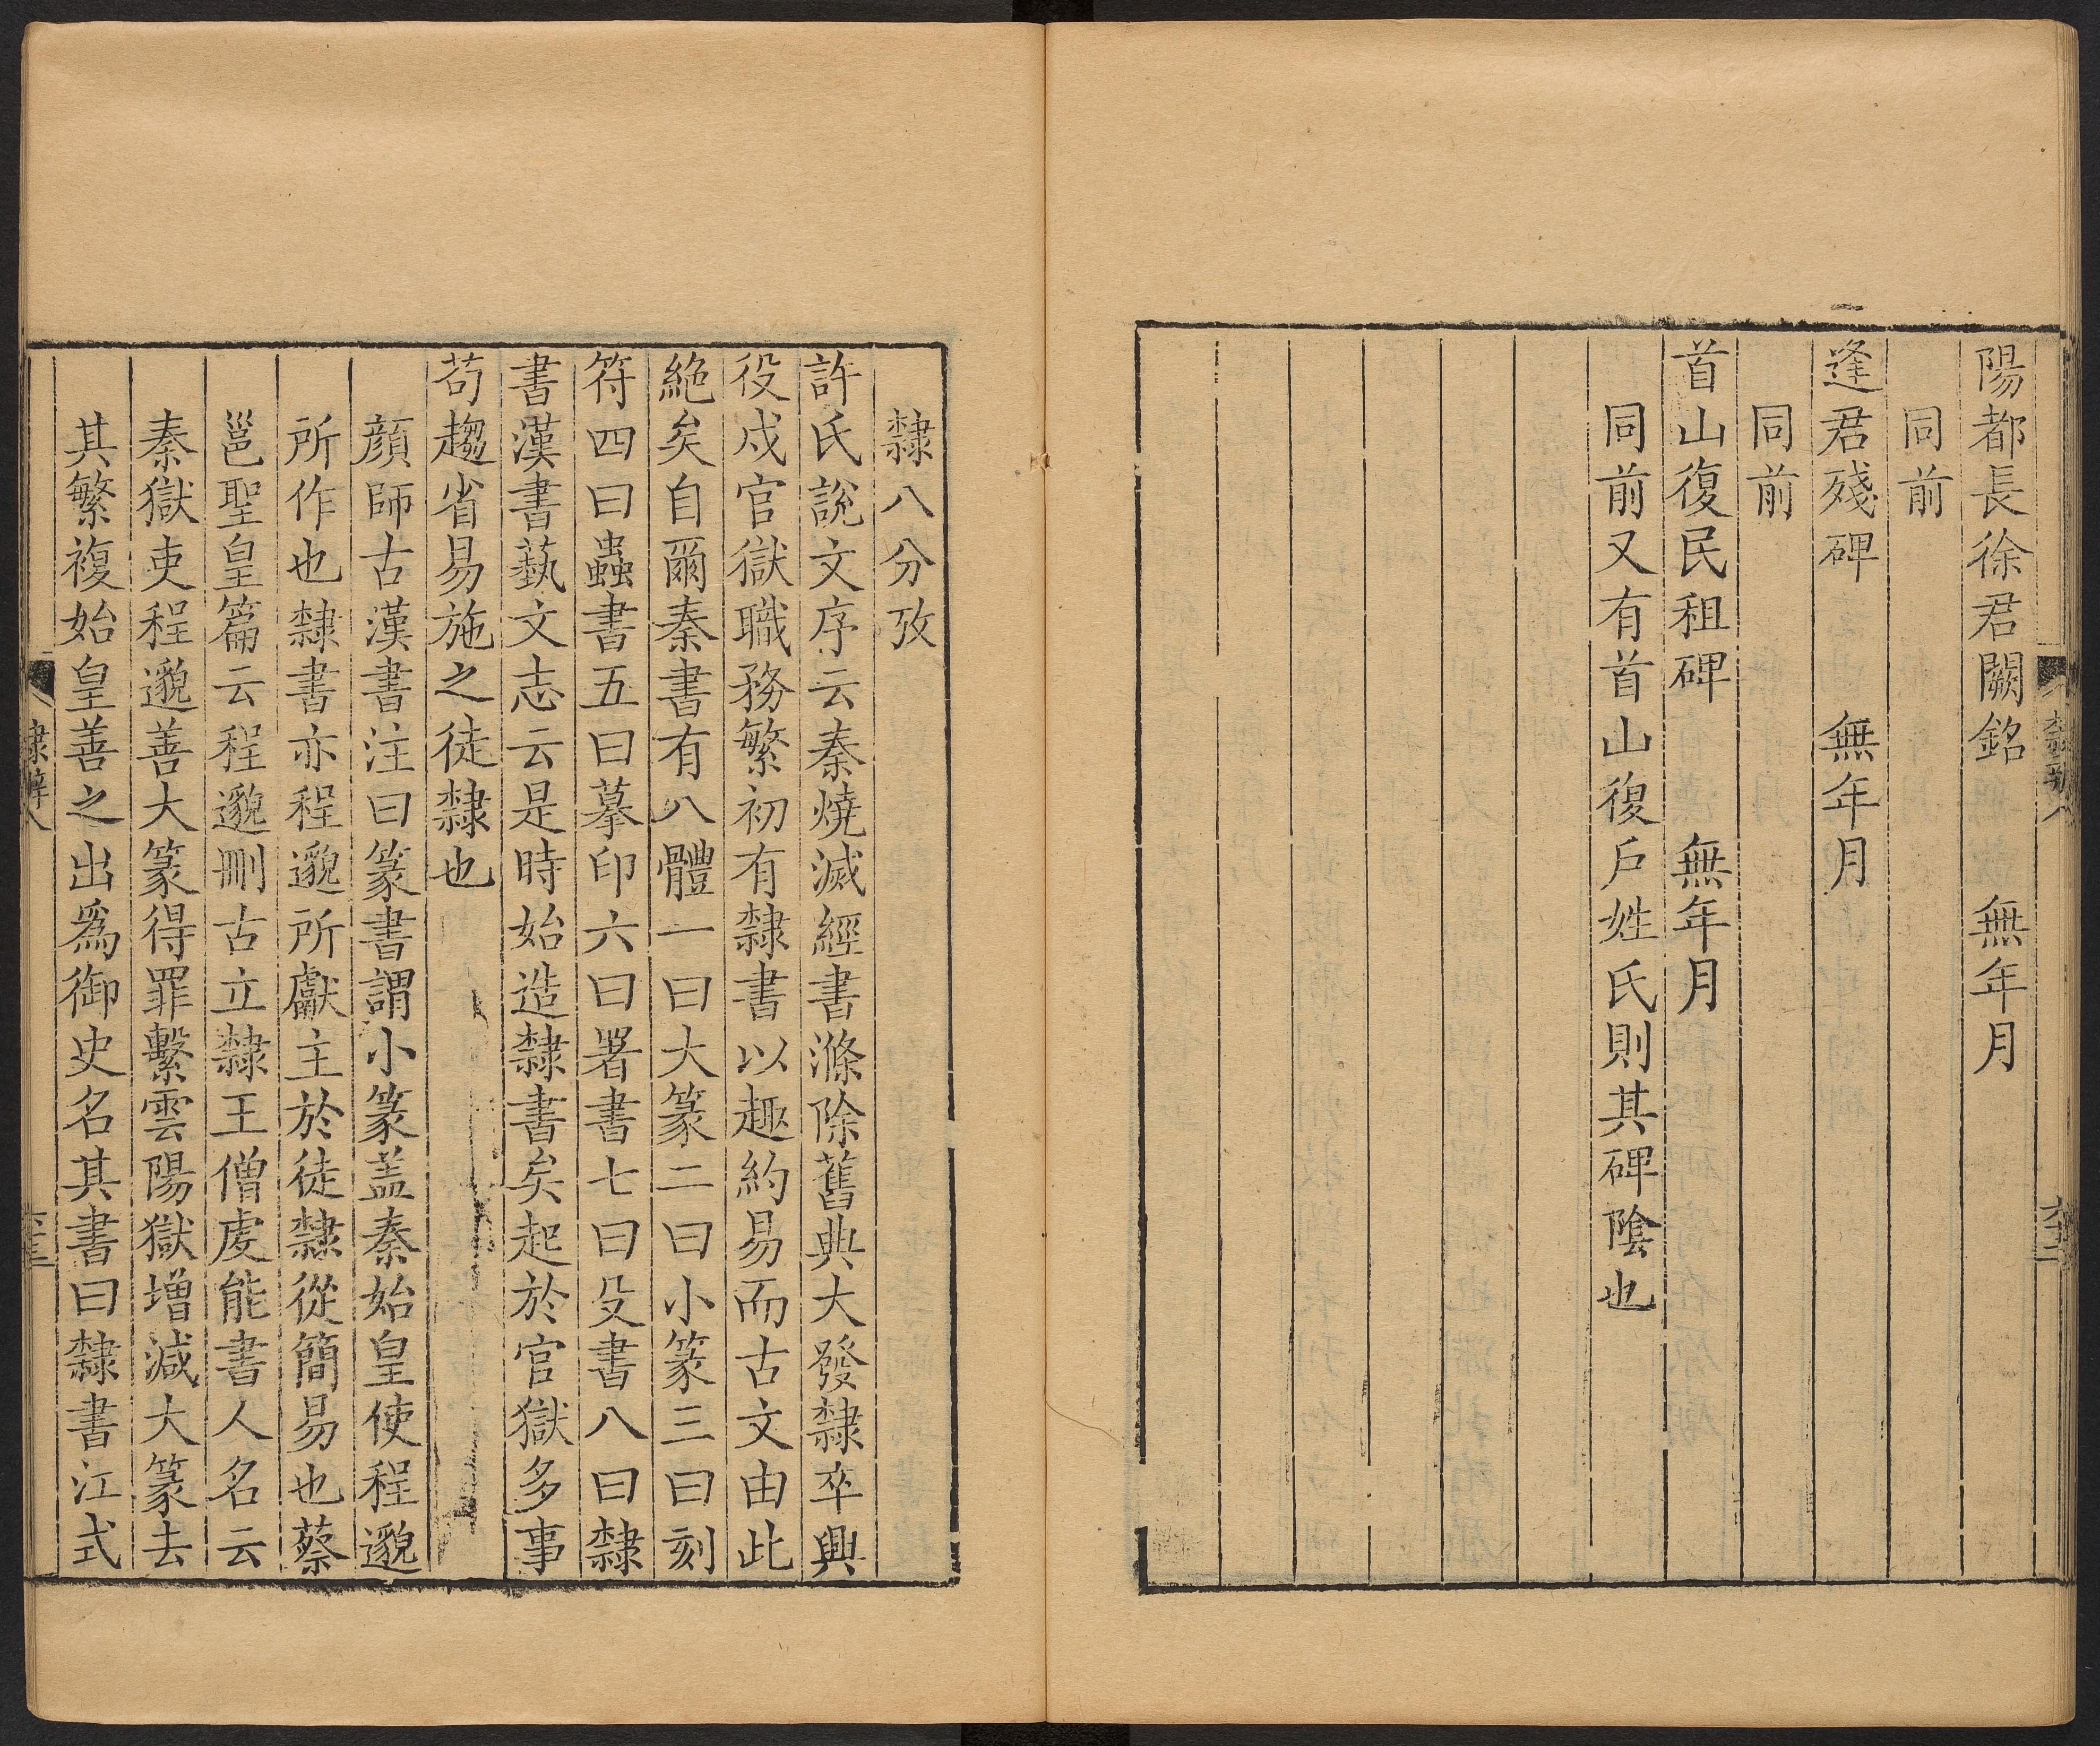 陽都長徐君闕銘 無年月
同前
逢君殘碑 無年月
同前
首山復民租碑 無年月
同前又有首山復戶姓氏則其碑陰也
隸八分攷
許氏說文序云秦燒滅經書滌除舊典大發隸卒興
役戍官獄職務繁初有隸書以趣約易而古文由此
絶矣自爾秦書有八體一曰大篆二曰小篆三曰刻
符四曰蟲書五曰摹印六曰署書七曰殳書八曰隸
書漢書藝文志云是時始造隸書矣起於官獄多事
苟趨省易施之徒隸也
顔師古漢書注曰篆書謂小篆盖秦始皇使程邈
所作也隸書亦程邈所獻主於徒隸從簡易也蔡
邕聖皇篇云程邈刪古立隸王僧虔能書人名云
秦獄吏程邈善大篆得罪繫雲陽獄增減大篆去
其繁複始皇善之出爲御史名其書曰隸書江式